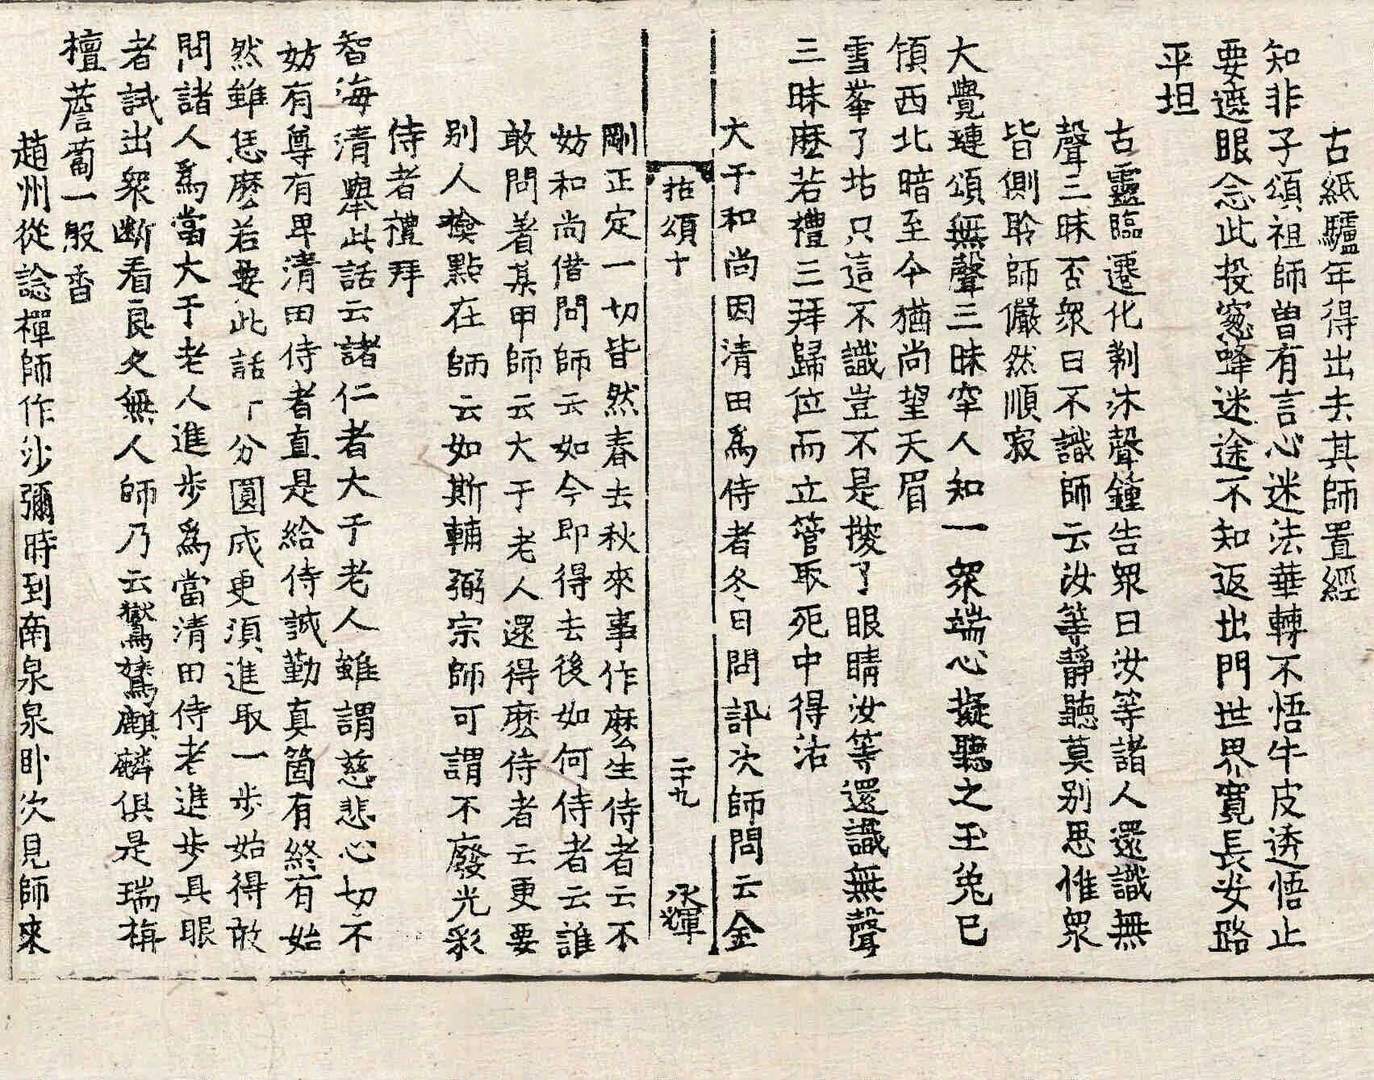 古紙驢年得出去其師置經
知非子頌祖師曽有言心迷法華轉不悟牛皮透悟止
要遮眼念此投窓蜂迷途不知返出門世界寬長安路
平坦
古靈臨遷化剃沐聲鐘告衆曰汝等諸人還識無
聲三昧否衆曰不識師云汝等靜聽莫別思惟衆
皆側聆師儼然順寂
大覺璉頌無聲三昧窂人知一衆端心擬聽之玉兔已
頟西北暗至今猶尚望天眉
雪峯了拈只這不識豈不是㨨了眼睛汝等還識無聲
三昧麽若禮三拜歸位而立管取死中得活
大于和尚因清田爲侍者冬日問訊次師問云金
拈頌十
二十九
永輝
剛正定一切皆然春去秋來事作麽生侍者云不
妨和尚借問師云如今即得去後如何侍者云誰
敢問著某甲師云大于老人還得麽侍者云更要
别人撿點在師云如斯輔弼宗師可謂不廢光彩
侍者禮拜
智海清舉此話云諸仁者大于老人雖謂慈悲心切不
妨有尊有卑清田侍者直是給侍誠勤真箇有終有始
然雖恁麽若要此話十分圓成更須進取一歩始得敢
問諸人爲當大于老人進歩爲當清田侍老進歩具眼
者試出衆断看良久無人師乃云鸑鷟麒麟俱是瑞栴
檀薝蔔一般香
趙州從諗禪師作沙彌時到南泉泉卧次見師來